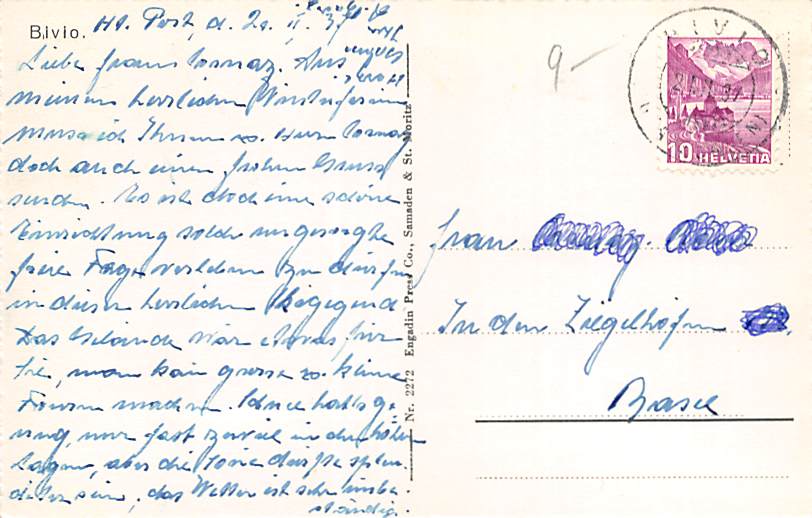 Bivio. Ht. Post, d. 20. II. 37
Liebe Frau Tornaz. Aus
meinen herrlichen Winterferien
muss ich Ihnen u. Herr Tornaz
doch auch einen frohen Gruss
senden. Es ist doch eine schöne
Einrichtung solche ungesorgte
freie Tage verleben zu dürfen
in dieser herrlichen Skigegend
Das Gelände wär etwas für
Sie, man kan grosse u. kleine
Touren machen. Schnee hat's ge-
nug, nur fast zuviel in den höhern
Lagen, aber die Sonne dürfte splen-
dider sein, das Wetter ist sehr unbe-
ständig.
Nr. 2272 Engadin Press Co., Samaden & St. Moritz
9-
BIVIO
10 HELVETIA
Frau
In den Ziegelhöfen
Basel